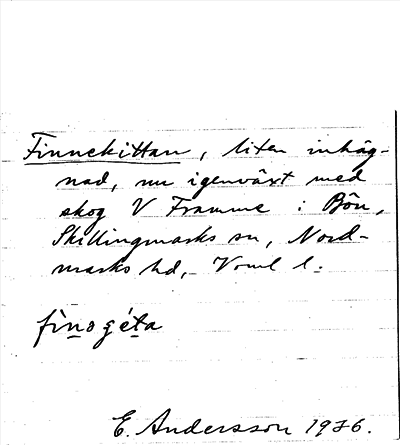 Finnekittan, liten inhäg-
nad, nu igenväxt med
skog V Framme i Bön,
Skillingmarks sn, Nord-
marks hd, Vrml l.
E. Andersson 1936.